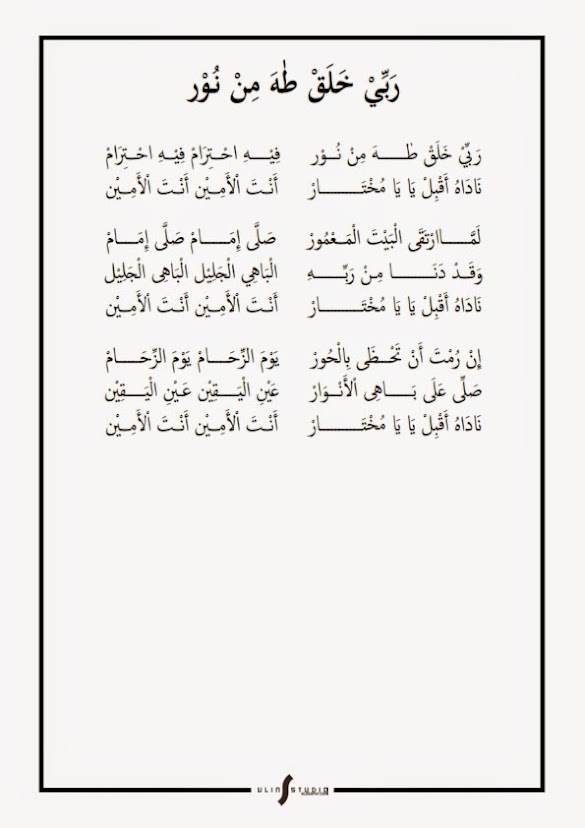 رَبِّيْ خَلَقْ طٰهَ مِنْ نُوْر
رَبِّيْ خَلَقْ طٰـــهَ مِنْ نُـــوْر فِيْـــهِ احْـتِرَامْ فِيْـهِ احْـتِرَامْ
نَادَاهُ أَقْبِلْ يَا يَا مُخْتَـــــارْ أَنْـتَ الْأَمِـيْن أَنْـتَ الْأَمِـيْن
لَمَّـــاارْتَقَى الْبَيْتَ الْمَـعْمُورْ صَلَّى إِمَـــامْ صَلَّى إِمَـــامْ
وَقَــدْ دَنَـــــا مِـنْ رَبِّـــهِ الْبَاهِي الْجَلِيْل الْبَاهِى الْجَلِيْل
نَادَاهُ أَقْبِلْ يَا يَا مُخْتَـــــارْ أَنْـتَ الْأَمِـيْن أَنْـتَ الْأَمِـيْن
إِنْ رُمْتَ أَنْ تَحْـــظَى بِالْحُورْ يَوْمَ الزِّحَـــامْ يَوْمَ الزِّحَـــامْ
صَلِّى عَلَى بَـــاهِى اْلأَنْــوَارْ عَيْنِ الْيَـــقِيْن عَـيْنِ الْيَـــقِيْن
نَادَاهُ أَقْبِلْ يَا يَا مُخْتَـــــارْ أَنْـتَ الْأَمِـيْن أَنْـتَ الْأَمِـيْن
ULIN STUDIO